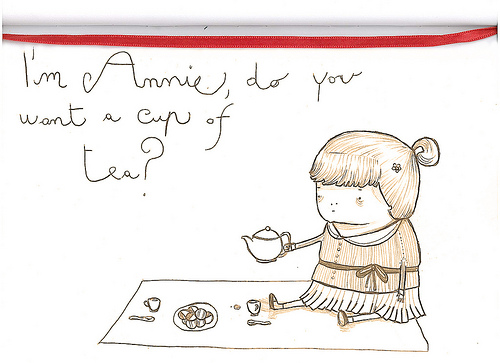 I'm Annie, do you
want a cup of
tea?